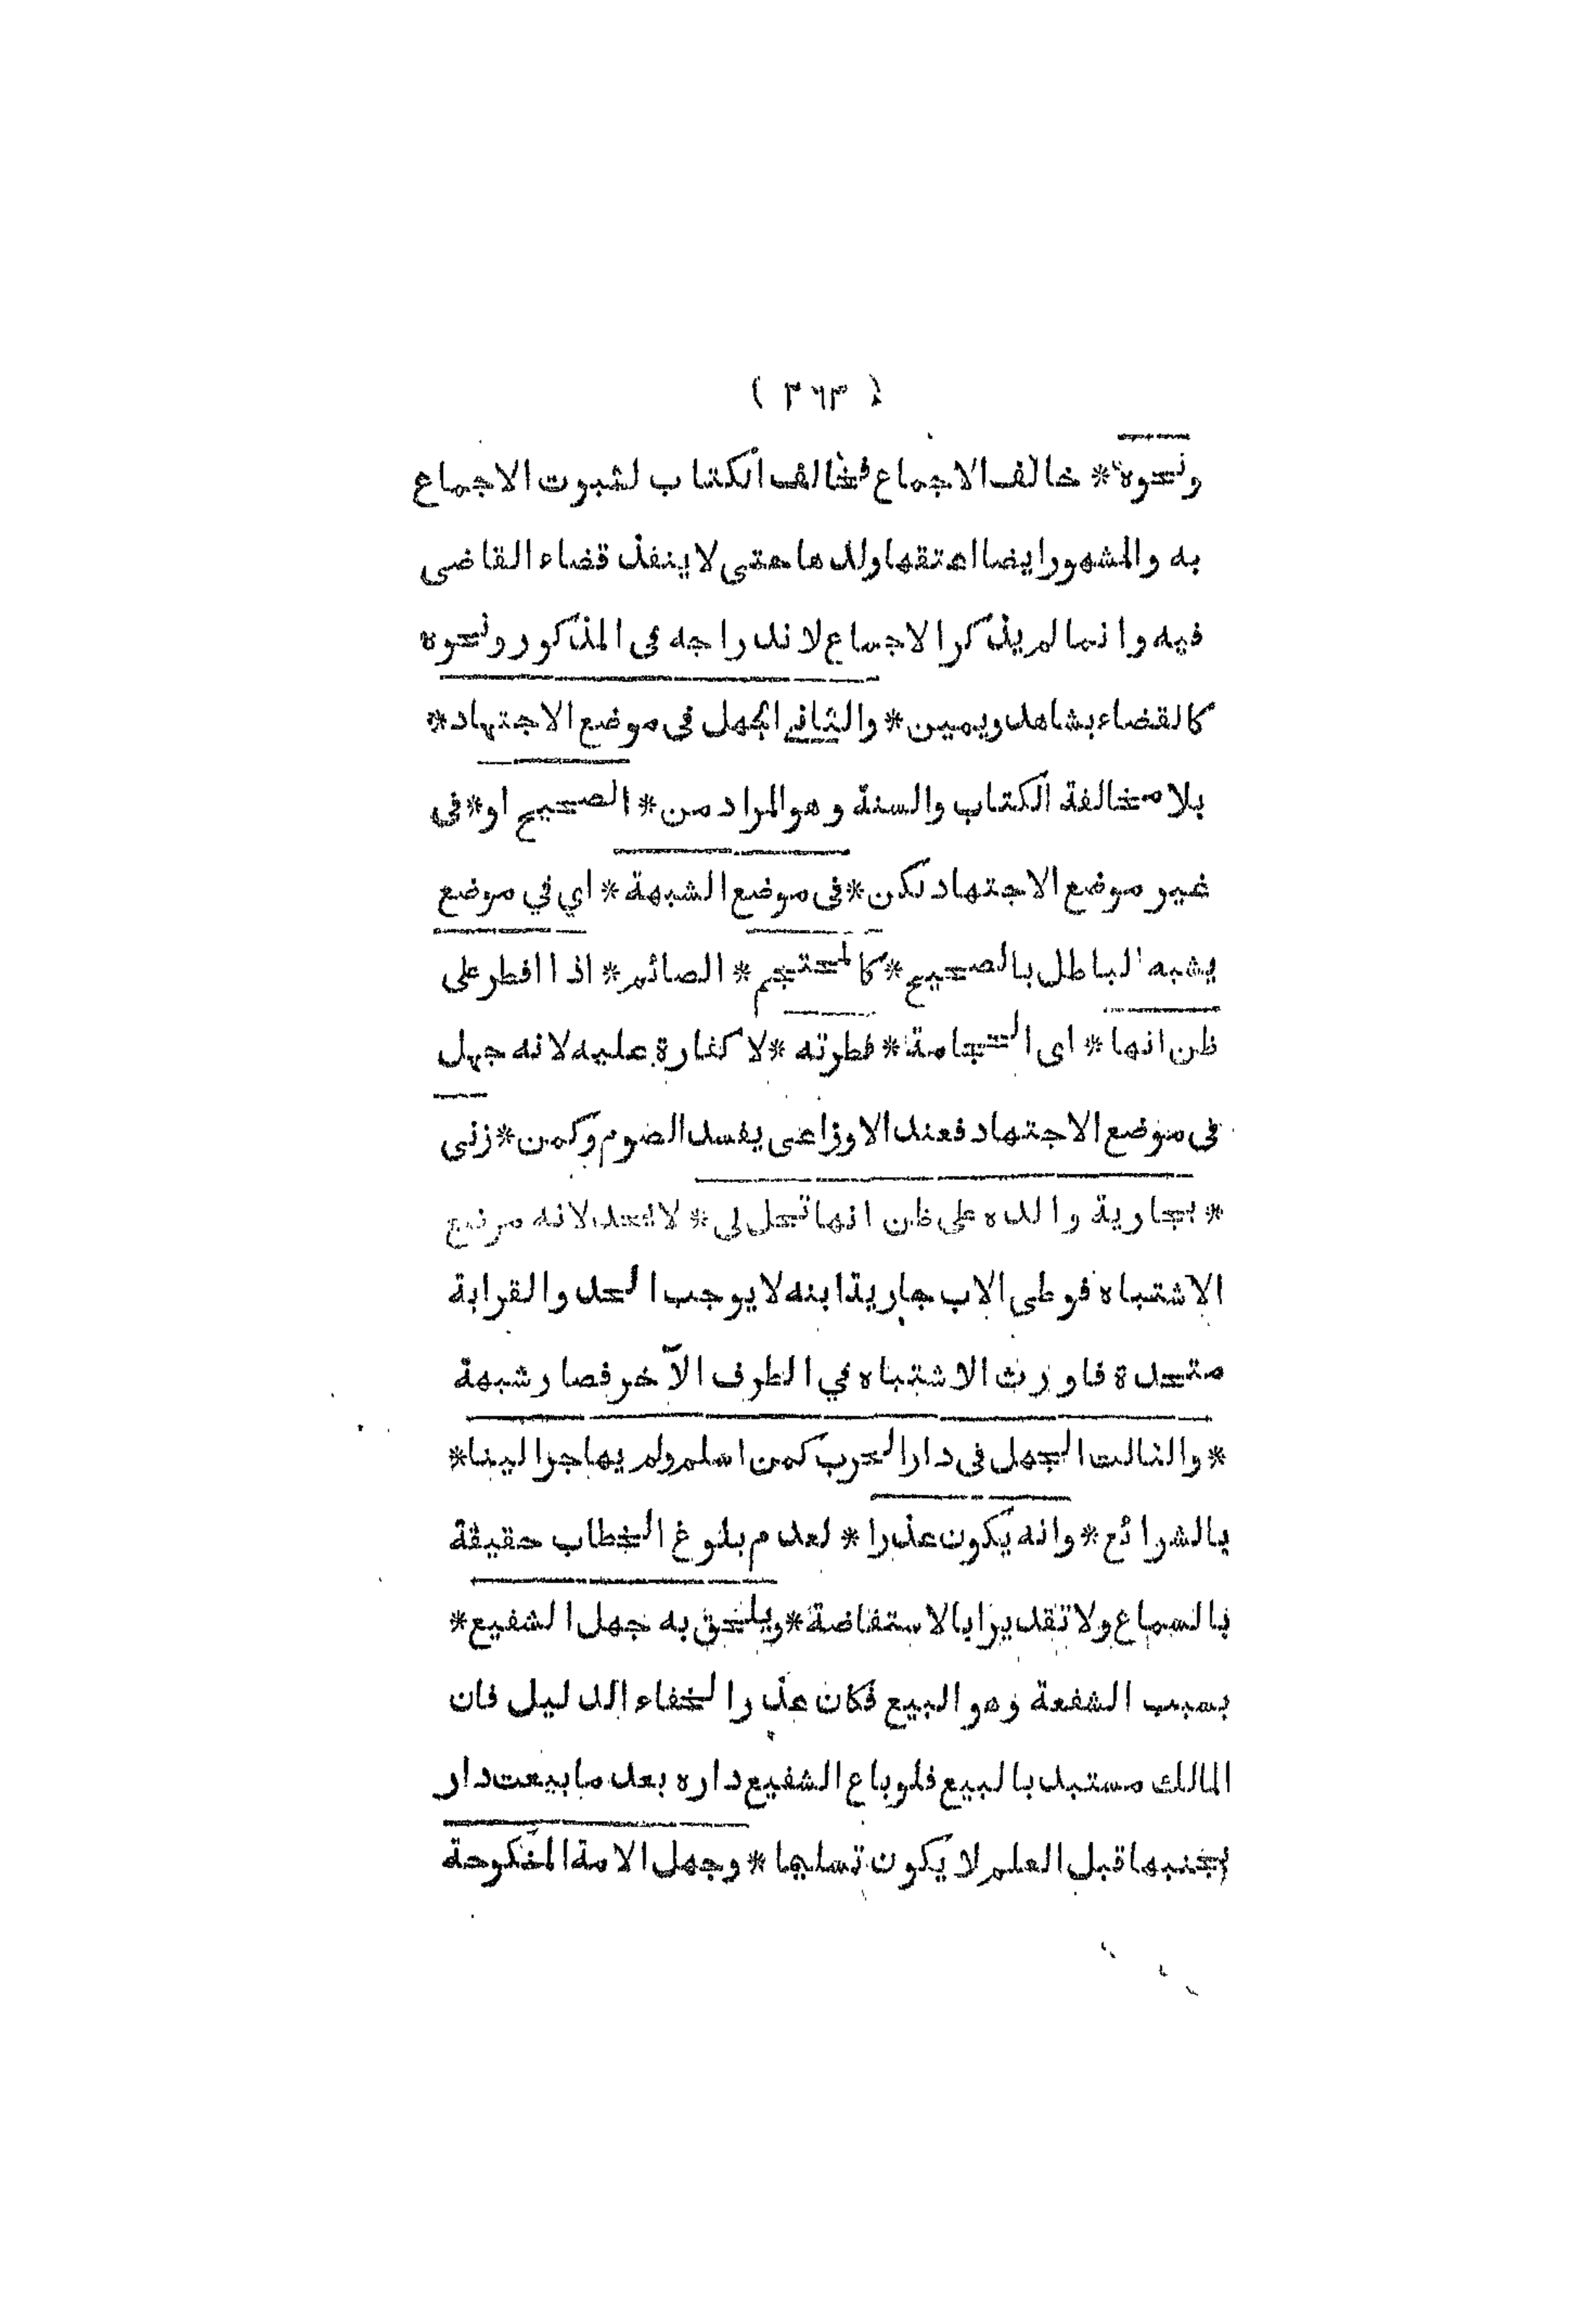 ( ٣٦٣ )
ونحوه * خالف الاجماع فخالف الكتاب لثبوت الاجماع
به والمشهور ايضا اعتقها ولدها حتى لا ينفذ قضاء القاضى
فيه وانما لم يذكر الاجماع لاندراجه فى المذكور ونحوه
كالقضاء بشاهد ويمين * والثاني الجهل فى موضع الاجتهاد *
بلا مخالفة الكتاب والسنة وهو المراد من * الصحيح او * فى
غير موضع الاجتهاد لكن * فى موضع الشبهة * اي في موضع
يشبه الباطل بالصحيح * كالمحتجم * الصائم * اذا افطر على
ظن انها * اى الحجامة * فطرته * لا كفارة عليه لانه جهل
فى موضع الاجتهاد فعند الاوزاعى يفسد الصوم وكمن * زنى
* بجارية والده على ظن انها تحل لى * لا يحد لانه موضع
الاشتباه فوطى الاب جارية ابنه لا يوجب الحد والقرابة
متحدة فاورث الاشتباه في الطرف الآخر فصار شبهة
* والثالث الجهل فى دار الحرب كمن اسلم ولم يهاجر الينا *
بالشرائع * وانه يكون عذرا * لعدم بلوغ الخطاب حقيقة
بالسماع ولا تقديرا بالاستفاضة * ويلحق به جهل الشفيع *
بسبب الشفعة وهو البيع فكان عذرا لخفاء الدليل فان
المالك مستبد بالبيع فلو باع الشفيع داره بعد ما بيعت دار
بجنبها قبل العلم لا يكون تسليما * وجهل الامة المنكوحة